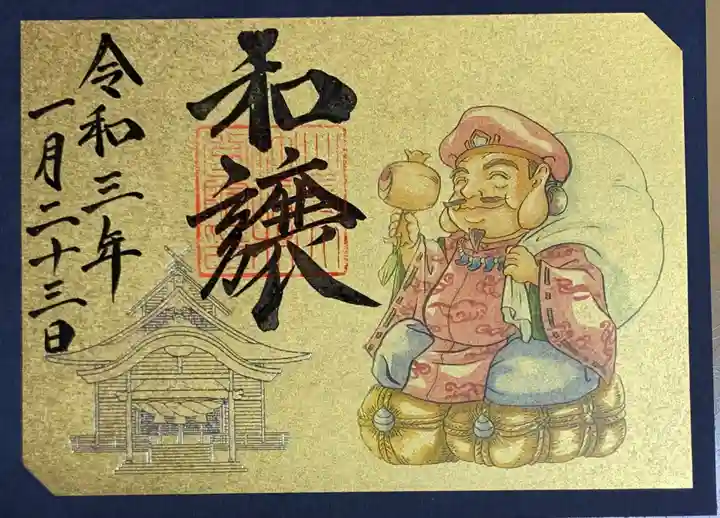 和譲
令和三年
一月二十三日